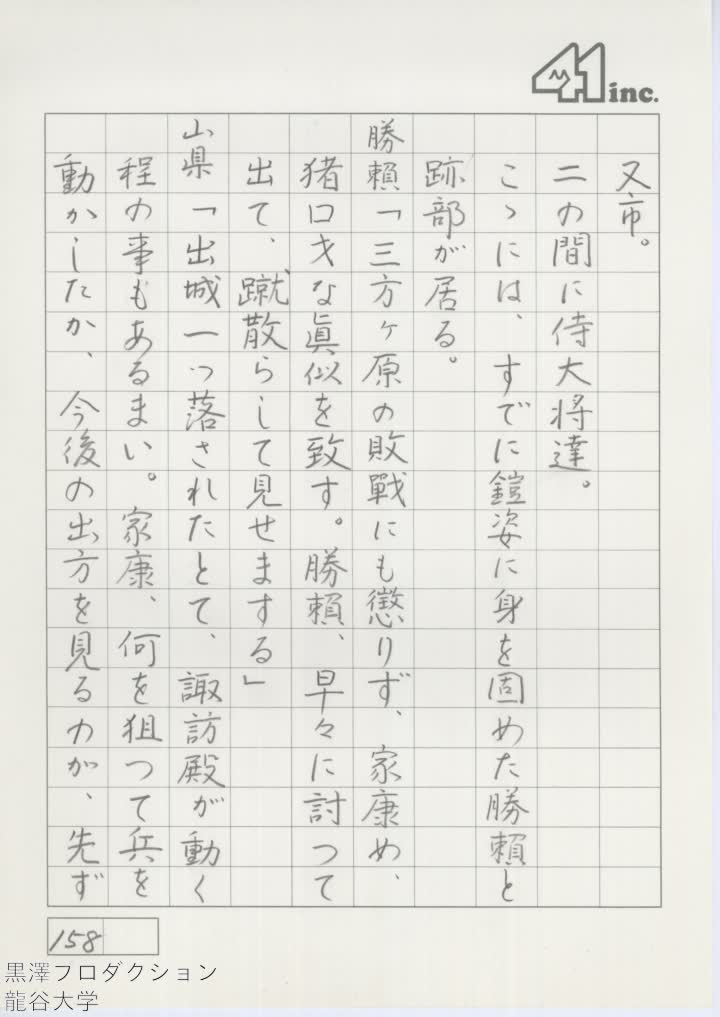 41 inc.
又市。
二の間に侍大将達。
こゝには、すでに鎧姿に身を固めた勝頼と
跡部が居る。
勝頼「三方ヶ原の敗戰にも懲りず、家康め、
猪口才な眞似を致す。勝頼、早々に討つて
出て、蹴散らして見せまする」
山県「出城一つ落されたとて、諏訪殿が動く
程の事もあるまい。家康、何を狙つて兵を
動かしたか、今後の出方を見るのが、先ず
158
黒澤プロダクション
龍谷大学